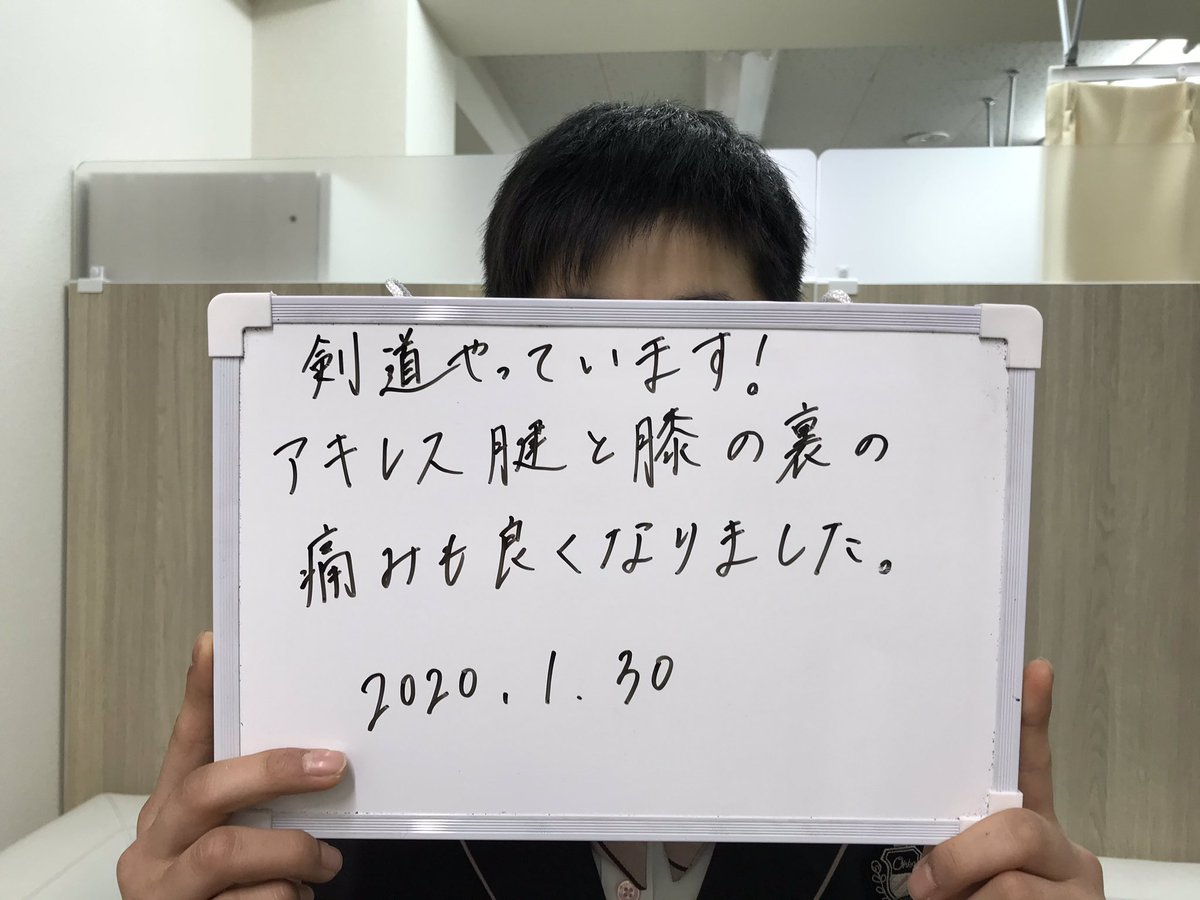 剣道やっています!
アキレス腱と膝の裏の
痛みも良くなりました。
2020.1.30